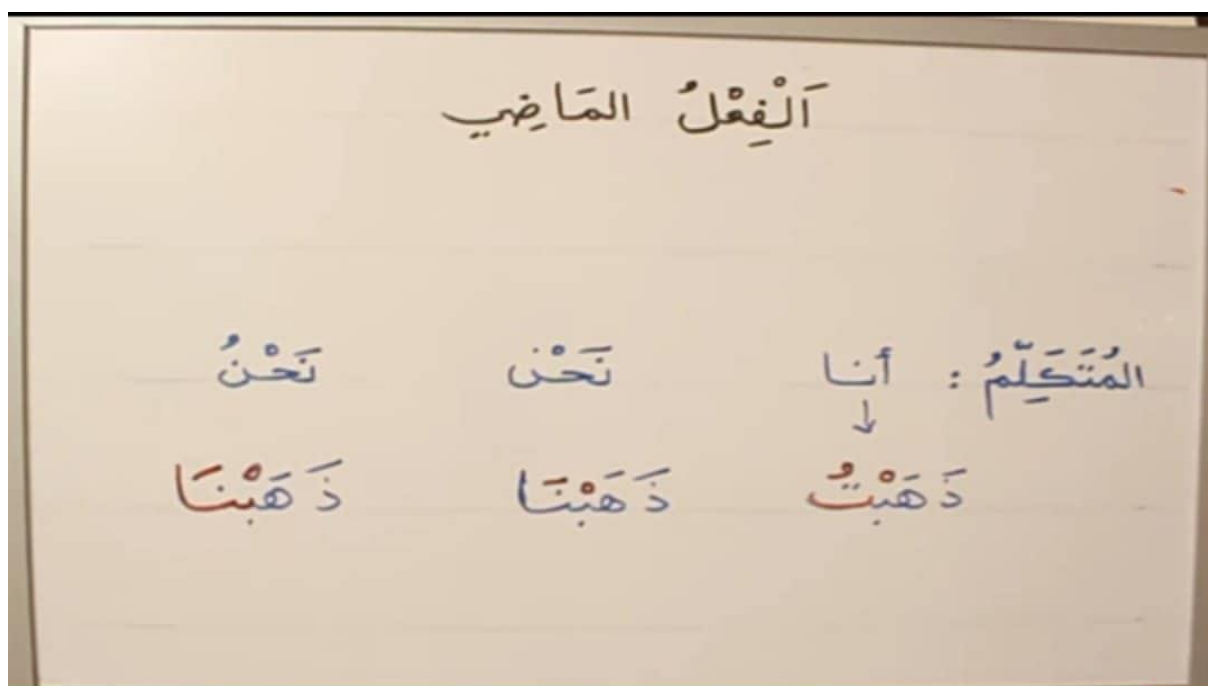 اَلْفِعْلُ المَاضِي
المُتَكَلِّمُ : أنا نَحْن نَحْنُ
ذَهَبْتُ ذَهَبْنَا ذَهَبْنَا